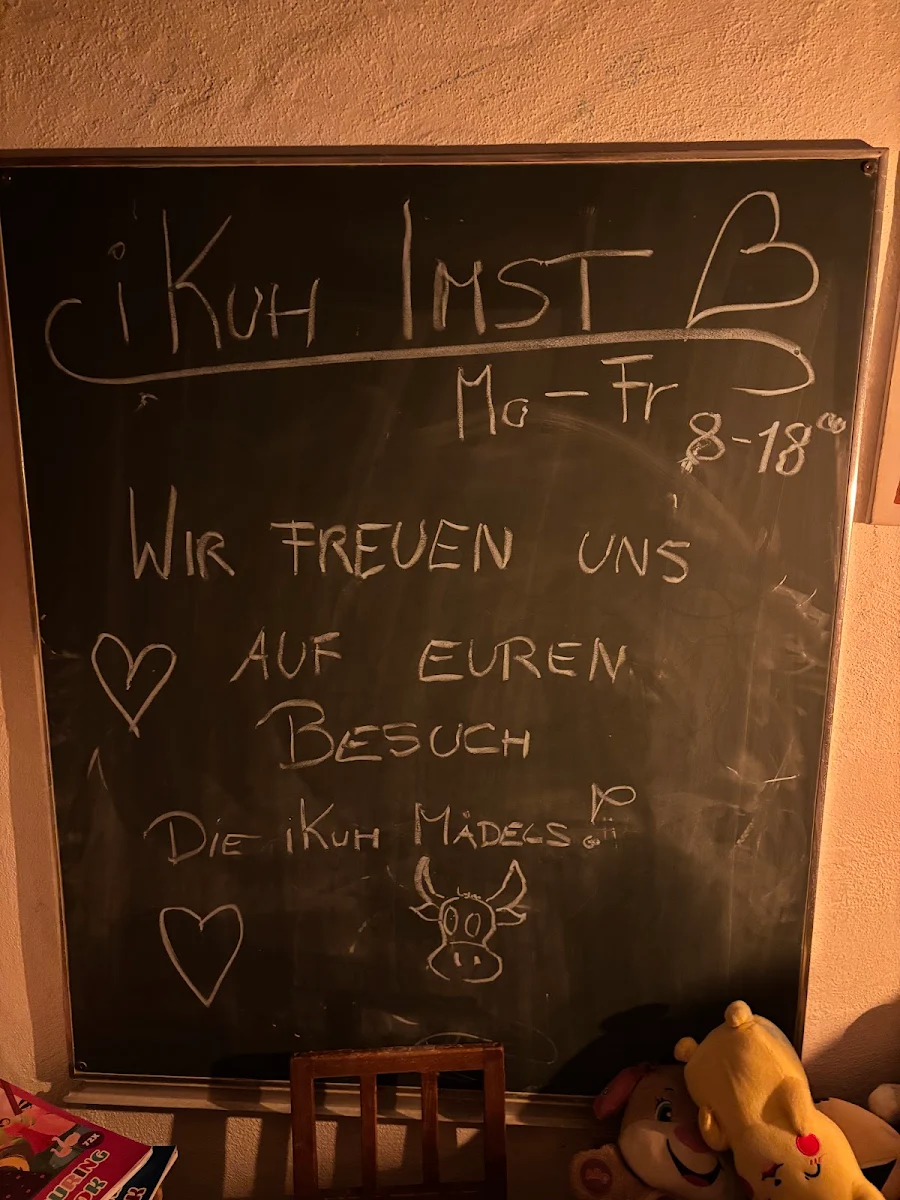 iKuh Imst
Mo - Fr
8-18⁰⁰
WIR FREUEN UNS
AUF EUREN
BESUCH
DIE iKuh MÄDELS!
URING
OK
72X